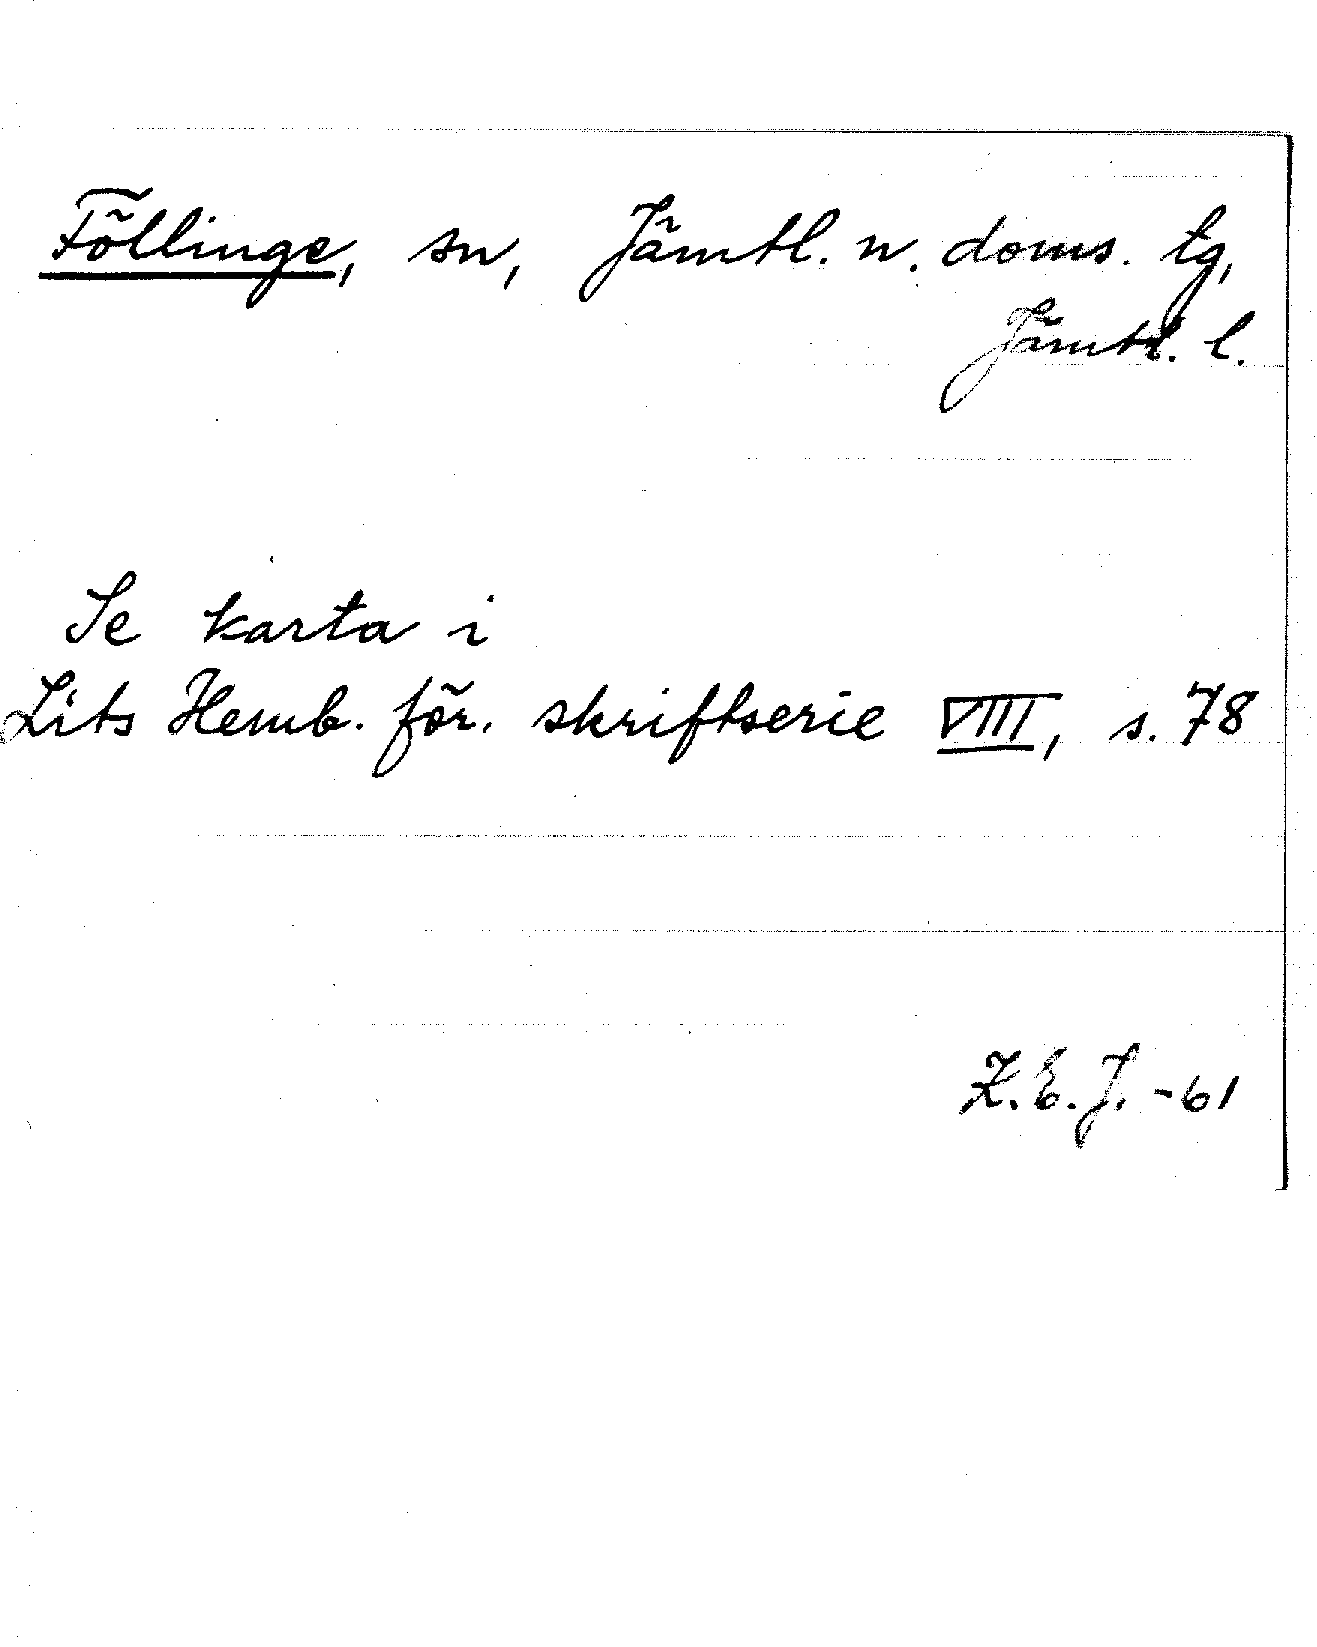 Föllinge, sn, Jämtl. n. doms. tg,
Jämtl. l.
Se karta i
Lits Hemb. för. skriftserie VIII, s. 78
Z.E.J. -61